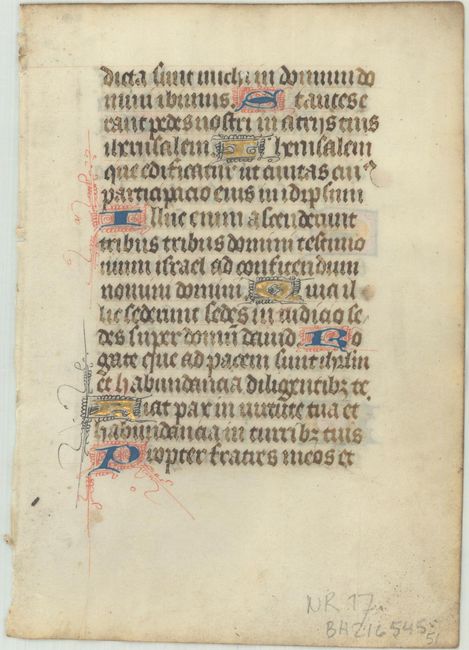 dicta sunt michi in domum do
mini ibimus. S tantes e
rant pedes nostri in atrijs tuis
iherusalem I herusalem
que edificatur ut ciuitas cui9
participacio eius in idipsum
I lluc enim ascenderunt
tribus tribus domini testimo
nium israel ad confitendum
nomini domini Q uia il
lic sederunt sedes in iudicio se
des super domū dauid R o
gate que ad pacem sunt ihrlm
et habundancia diligentibz te
F iat pax in uirtute tua et
habundancia in turribz tuis
P ropter fratres meos et
NR 17.
BH216545
51